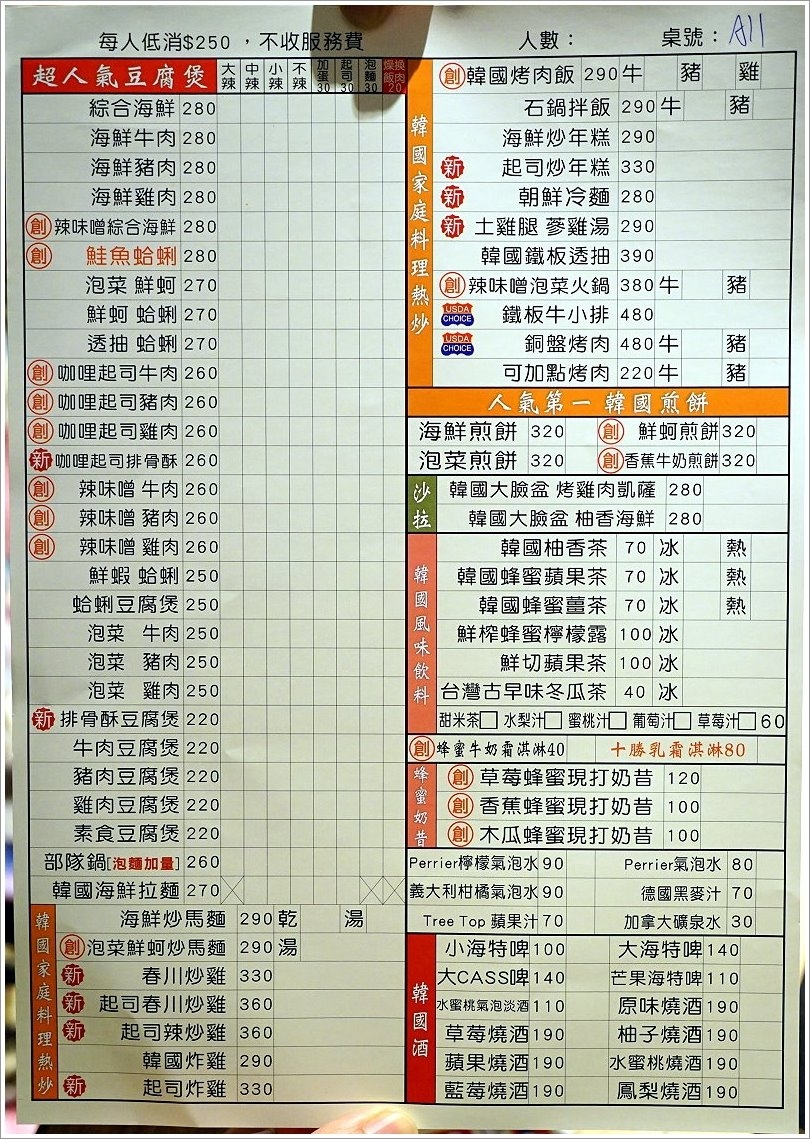 每人低消$250 ，不收服務費 人數： 桌號： A11
超人氣豆腐煲 大辣 中辣 小辣 不辣 加蛋30 起司30 泡麵30 換肉燥飯20
綜合海鮮 280
海鮮牛肉 280
海鮮豬肉 280
海鮮雞肉 280
創 辣味噌綜合海鮮 280
創 鮭魚蛤蜊 280
泡菜 鮮蚵 270
鮮蚵 蛤蜊 270
透抽 蛤蜊 270
創 咖哩起司牛肉 260
創 咖哩起司豬肉 260
創 咖哩起司雞肉 260
新 咖哩起司排骨酥 260
創 辣味噌 牛肉 260
創 辣味噌 豬肉 260
創 辣味噌 雞肉 260
鮮蝦 蛤蜊 250
蛤蜊豆腐煲 250
泡菜 牛肉 250
泡菜 豬肉 250
泡菜 雞肉 250
新 排骨酥豆腐煲 220
牛肉豆腐煲 220
豬肉豆腐煲 220
雞肉豆腐煲 220
素食豆腐煲 220
部隊鍋[泡麵加量] 260
韓國海鮮拉麵 270
韓國家庭料理熱炒
海鮮炒馬麵 290 乾 湯
創 泡菜鮮蚵炒馬麵 290 湯
新 春川炒雞 330
新 起司春川炒雞 360
新 起司辣炒雞 360
韓國炸雞 290
新 起司炸雞 330
韓國家庭料理熱炒
創 韓國烤肉飯 290 牛 豬 雞
石鍋拌飯 290 牛 豬
海鮮炒年糕 290
新 起司炒年糕 330
新 朝鮮冷麵 280
新 土雞腿 蔘雞湯 290
韓國鐵板透抽 390
創 辣味噌泡菜火鍋 380 牛 豬
USDA CHOICE 鐵板牛小排 480
USDA CHOICE 銅盤烤肉 480 牛 豬
可加點烤肉 220 牛 豬
人氣第一 韓國煎餅
海鮮煎餅 320 創 鮮蚵煎餅 320
泡菜煎餅 320 創 香蕉牛奶煎餅 320
沙拉
韓國大臉盆 烤雞肉凱薩 280
韓國大臉盆 柚香海鮮 280
韓國風味飲料
韓國柚香茶 70 冰 熱
韓國蜂蜜蘋果茶 70 冰 熱
韓國蜂蜜薑茶 70 冰 熱
鮮榨蜂蜜檸檬露 100 冰
鮮切蘋果茶 100 冰
台灣古早味冬瓜茶 40 冰
甜米茶□ 水梨汁□ 蜜桃汁□ 葡萄汁□ 草莓汁□ 60
創 蜂蜜牛奶霜淇淋40 十勝乳霜淇淋80
蜂蜜奶昔
創 草莓蜂蜜現打奶昔 120
創 香蕉蜂蜜現打奶昔 100
創 木瓜蜂蜜現打奶昔 100
Perrier檸檬氣泡水 90 Perrier氣泡水 80
義大利柑橘氣泡水 90 德國黑麥汁 70
Tree Top 蘋果汁 70 加拿大礦泉水 30
韓國酒
小海特啤 100 大海特啤 140
大CASS啤 140 芒果海特啤 110
水蜜桃氣泡淡酒 110 原味燒酒 190
草莓燒酒 190 柚子燒酒 190
蘋果燒酒 190 水蜜桃燒酒 190
藍莓燒酒 190 鳳梨燒酒 190